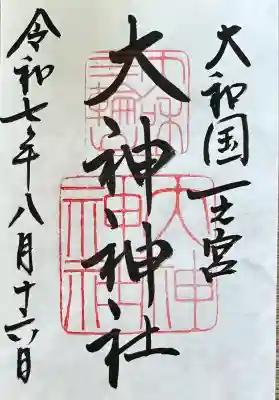 大和国一之宮
大神神社
令和七年八月十六日
大神
神社